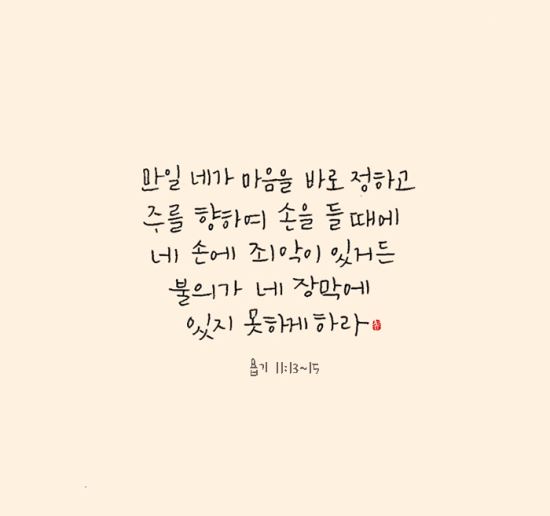 만일 네가 마음을 바로 정하고
주를 향하여 손을 들 때에
네 손에 죄악이 있거든
불의가 네 장막에
있지 못하게 하라
욥기 11:13~15